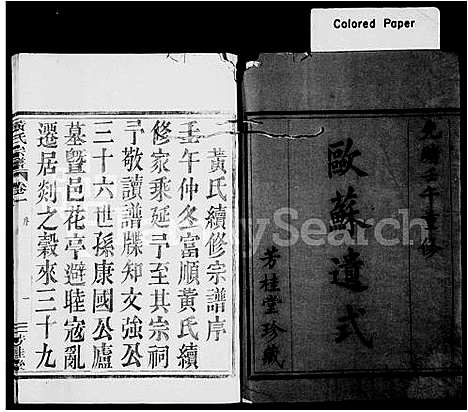 Colored Paper
歐蘇遺式
芳桂堂珍藏
黃氏續修宗譜序
壬午仲冬富順黃氏續
修家乘延予至其宗祠
予敬讀譜牒知文強公
三十六世孫康國公廬
墓暨邑花亭避睦寇亂
遷居剡之穀來三十九
序
FamilySearch